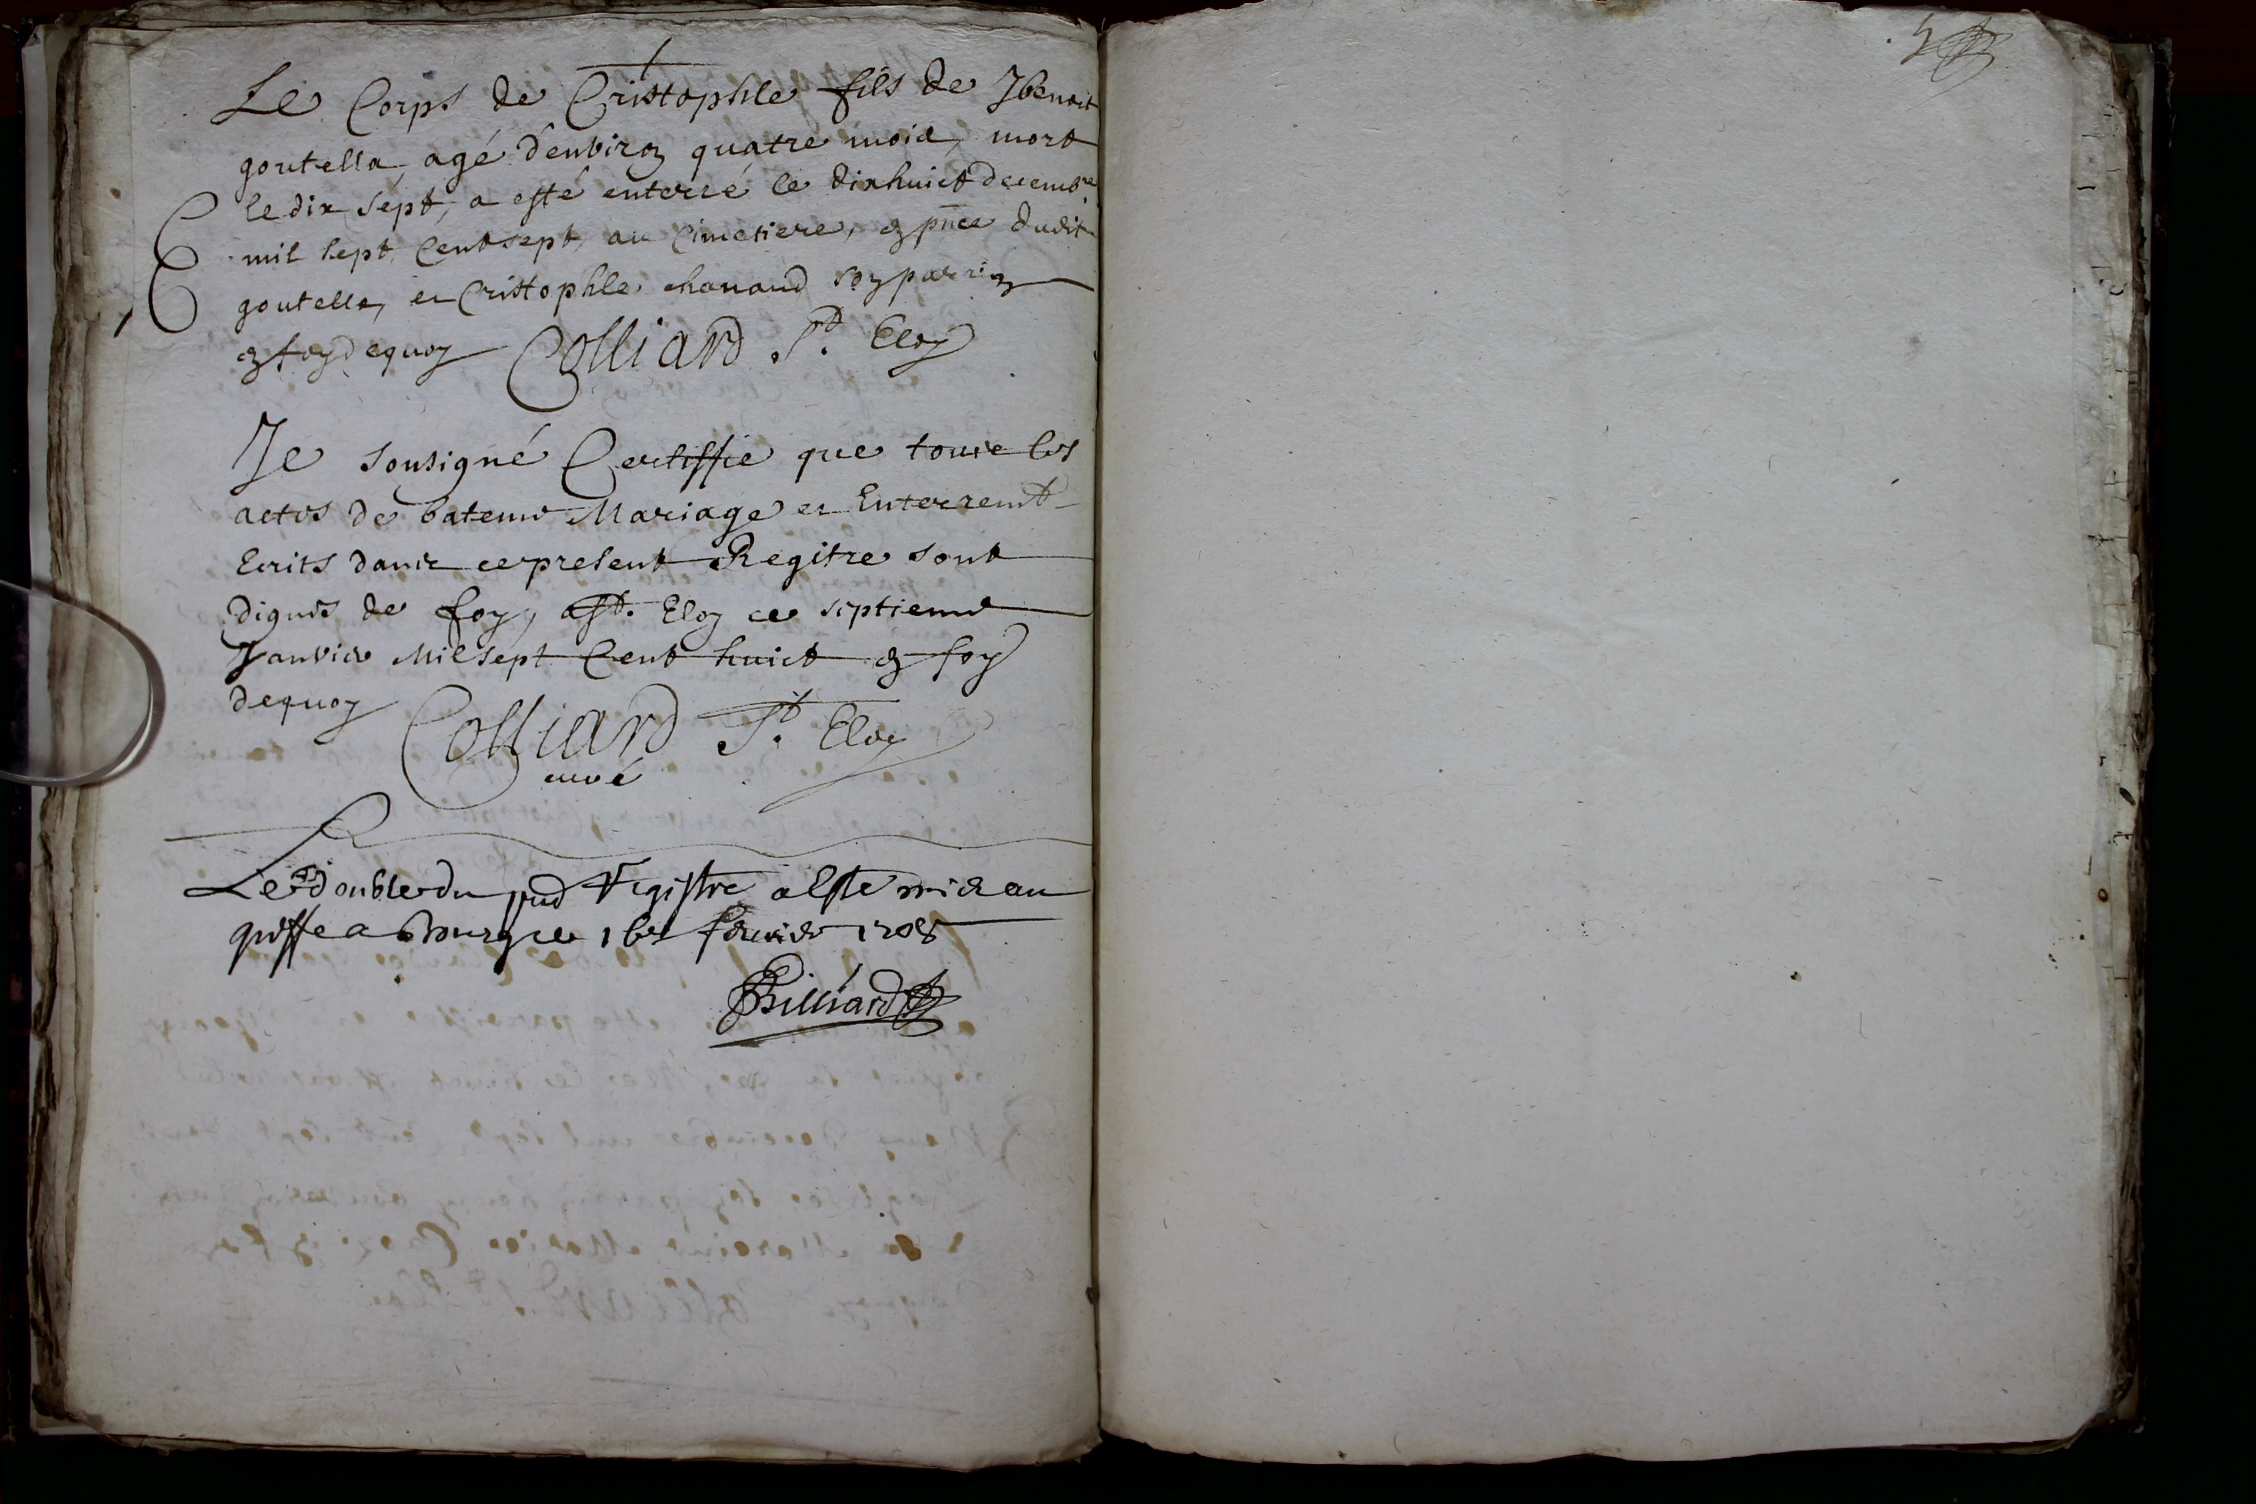 Le Corps de Cristophle fils de Jbenoit
goutella, agé d'enbiron quatre mois, mort
le dix sept, a esté enterré le dixhuict decembre
mil sept centsept au Cimetiere, en pñce dudit
goutella, et Cristophle chanaud son parrin
en foy dequoy Colliard St. Eloy
Je sousigné Certiffie que tous les
actes de bateme Mariage et Enterremt
Ecrits dans ce present Regitre sont
dignes de foy, a St. Eloy ce septieme
Janvier Mil sept Cent huict en foy
dequoy Colliard St. Eloy
curé
Le double du pnd registre a este mis au
greffe a Bourg ce 16e fevrier 1708
Billiard